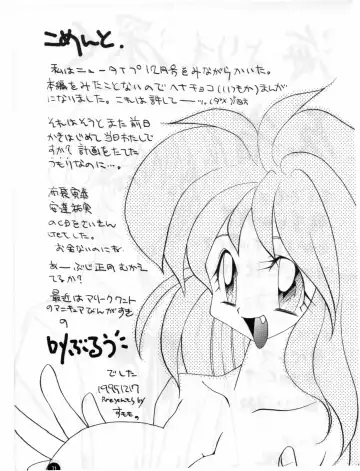 こめんと.
私はニュータイプ12月号をみながらかいた。
本編をみたことないのでヘナチョコ(いつもか)まんが
になりました。これは許してーッ。
それはそうとまた前日
かきはじめて当日わたしで
すか? 計画をたてた
つもりなのに…。
布袋寅泰
安達祐実
のCDをさいきん
けてした。
お金ないのにね
あーぶじ正月むかえ
てるか?
最近はマリークワント
のマニキュアびんがすき
の
byぶるう
でした
1995,12,17
Presents by
すもも。